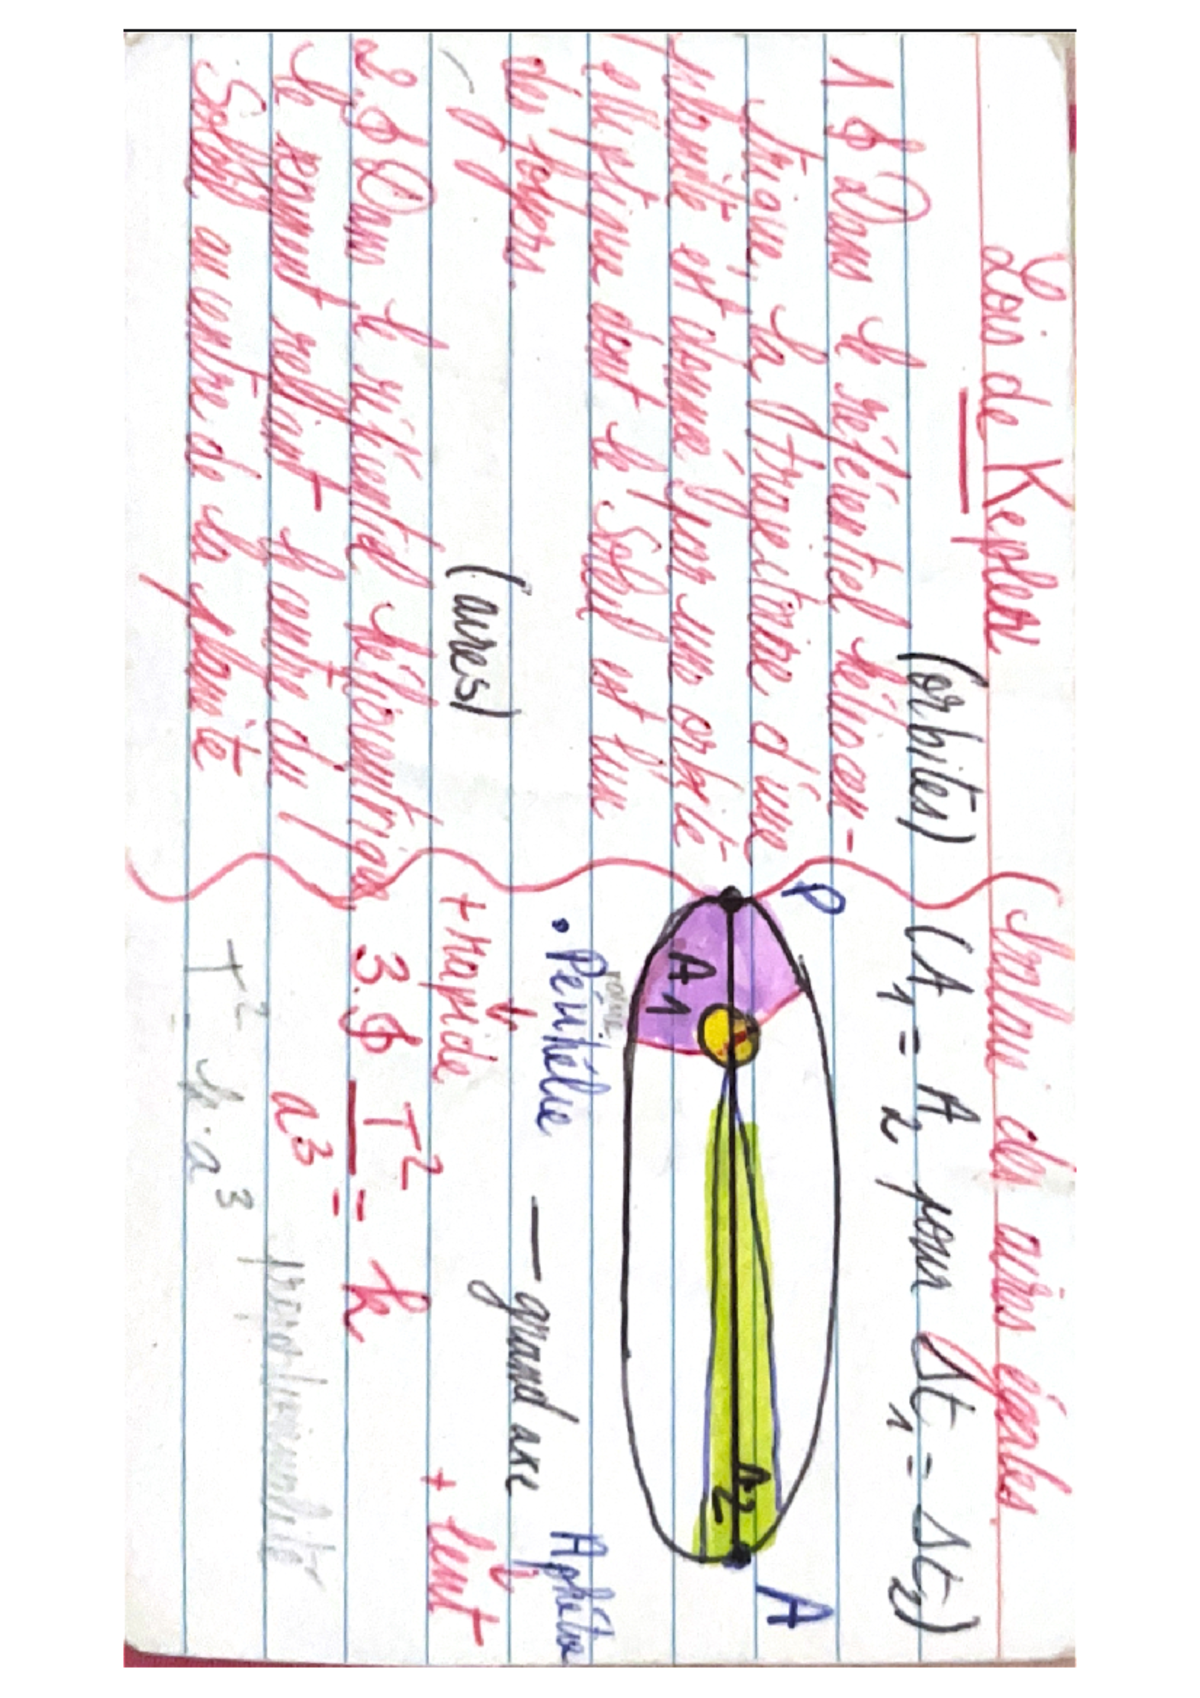 Lois de Kepler
(orbites)
1 $ Dans le référentiel héliocen-
trique, la trajectoire d'une
planète est donné par une orbite
elliptique dont le Soleil est l'un
des foyers.
(aires)
2.$ Dans le référentiel héliocentrique,
le rayant reliant le centre du
Soleil au centre de la planète
balaie des aires égales.
(A₁ = A₂ pour Δt₁ = Δt₂)
P
A
A1
A2
• Périhélie
Aphélie
— grand axe
+ rapide
+ lent
3.$ T² / a³ = k
proportionnalité
T² k·a³